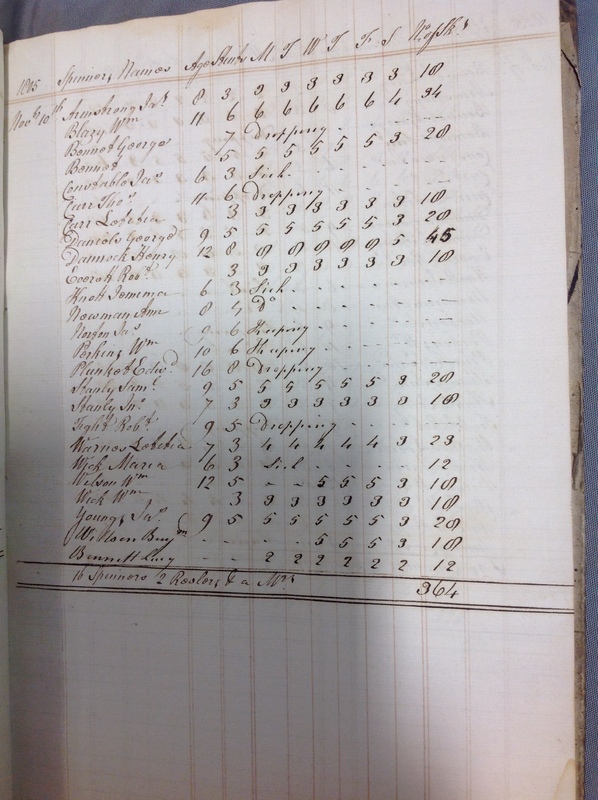 1805 Spinners Names Age Stint M T W T F S No of Sks
Novr 10th Armstrong Jas 8 3 3 3 3 3 3 3 18
Blazy Wm 11 6 6 6 6 6 6 4 34
Bennet George 7 Dropping - - - -
Bennet 5 5 5 5 5 5 3 28
Constable Jas 6 3 Sick - - - -
Curr Thos 11 6 Dropping - - - -
Curr Letitia 3 3 3 3 3 3 3 18
Daniels George 9 5 5 5 5 5 5 3 28
Dannock Henry 12 8 8 8 8 8 8 5 45
Robt 3 3 3 3 3 3 3 18
Knott Jemima 6 3 Sick - - - -
Newman Ann 8 4 Do - - - -
Norton Jas 9 6 - - - -
Perkins Wm 10 6 - - - -
Plunket Edwd 16 8 Dropping - - - -
Stanly Saml 9 5 5 5 5 5 5 3 28
Stanly Jno 7 3 3 3 3 3 3 3 18
Tight Robt 9 5 Dropping - - - -
Warnes Letitia 7 3 4 4 4 4 4 3 23
Wick Maria 6 3 - - - - 12
Welson Wm 12 5 - - 5 5 5 3 18
Wick Wm 3 3 3 3 3 3 3 18
Youngs Jas 9 5 5 5 5 5 5 3 28
Willsen Benjm - - - - 5 5 5 3 18
Bennett Lucy - - 2 2 2 2 2 2 12
16 Spinners 2 Reelers & a Mrs 364